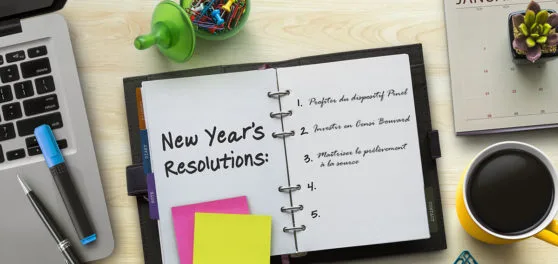 New Year's
Resolutions:
1. Profiter du dispositif Pinel
2. Investir en Censi Bouvard
3. Maîtriser le prélèvement
à la source
4.
5.